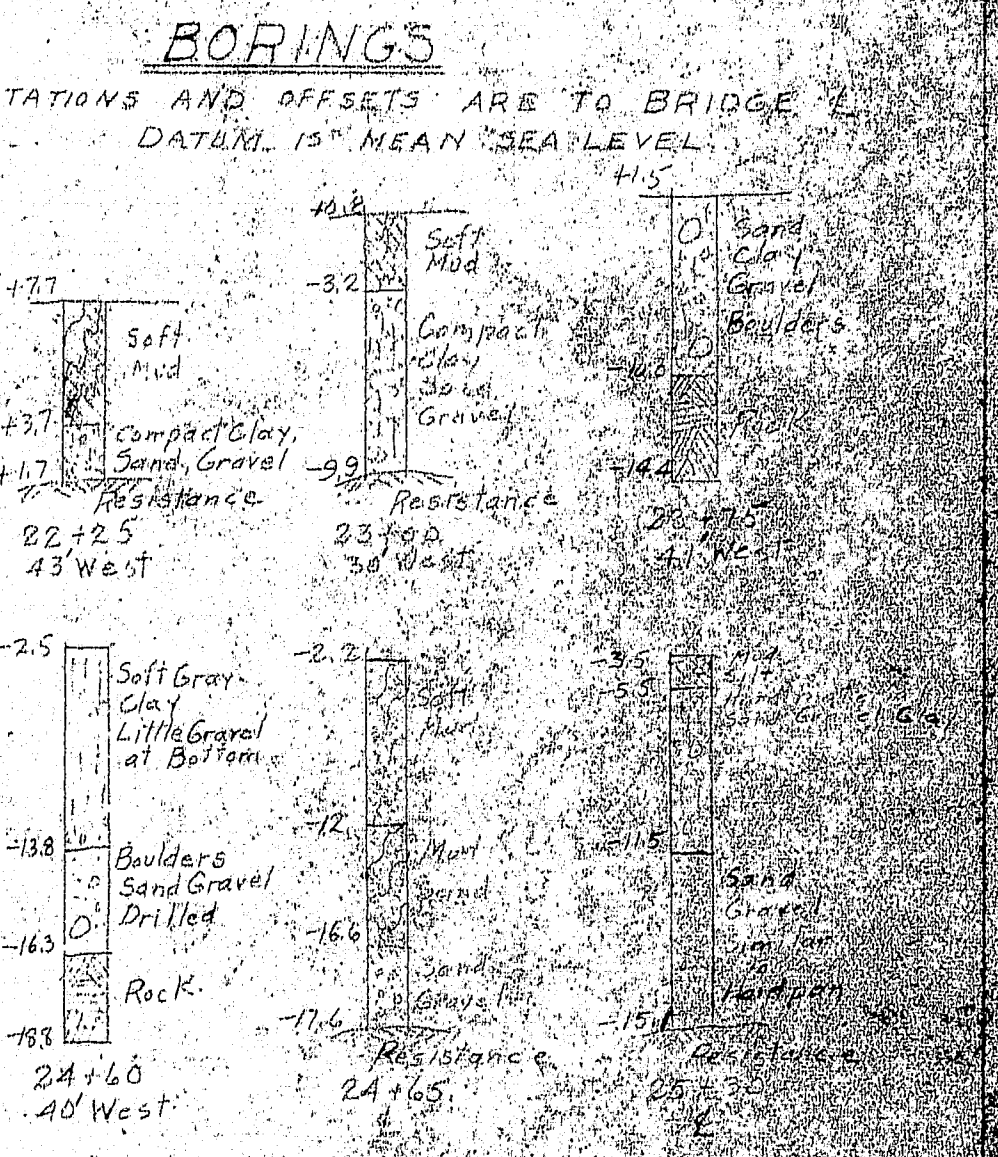 BORINGS
TATIONS AND OFFSETS ARE TO BRIDGE ℄
DATUM IS MEAN SEA LEVEL
+7.7
Soft
Mud
+3.7
Compact Clay,
Sand, Gravel
+1.7
Resistance
22+25
43' West
+0.8
Soft
Mud
-3.2
Compact
Clay
Sand
Gravel
-9.9
Resistance
23+00
30' West
+1.5
Sand
Clay
Gravel
Boulders
Rock
-14.4
23+75
41' West
-2.5
Soft Gray
Clay
Little Gravel
at Bottom
-13.8
Boulders
Sand Gravel
Drilled
-16.3
Rock
-18.8
24+60
40' West
-2.2
Soft
Mud
-12
Mud
Sand
-16.6
Sand
Gravel
-17.6
Resistance
24+65
℄
-3.5
Mud
Silt
-5.5
Sand Gravel Clay
-11.5
Sand
Gravel
Similar
to
Hardpan
-15.1
Resistance
℄